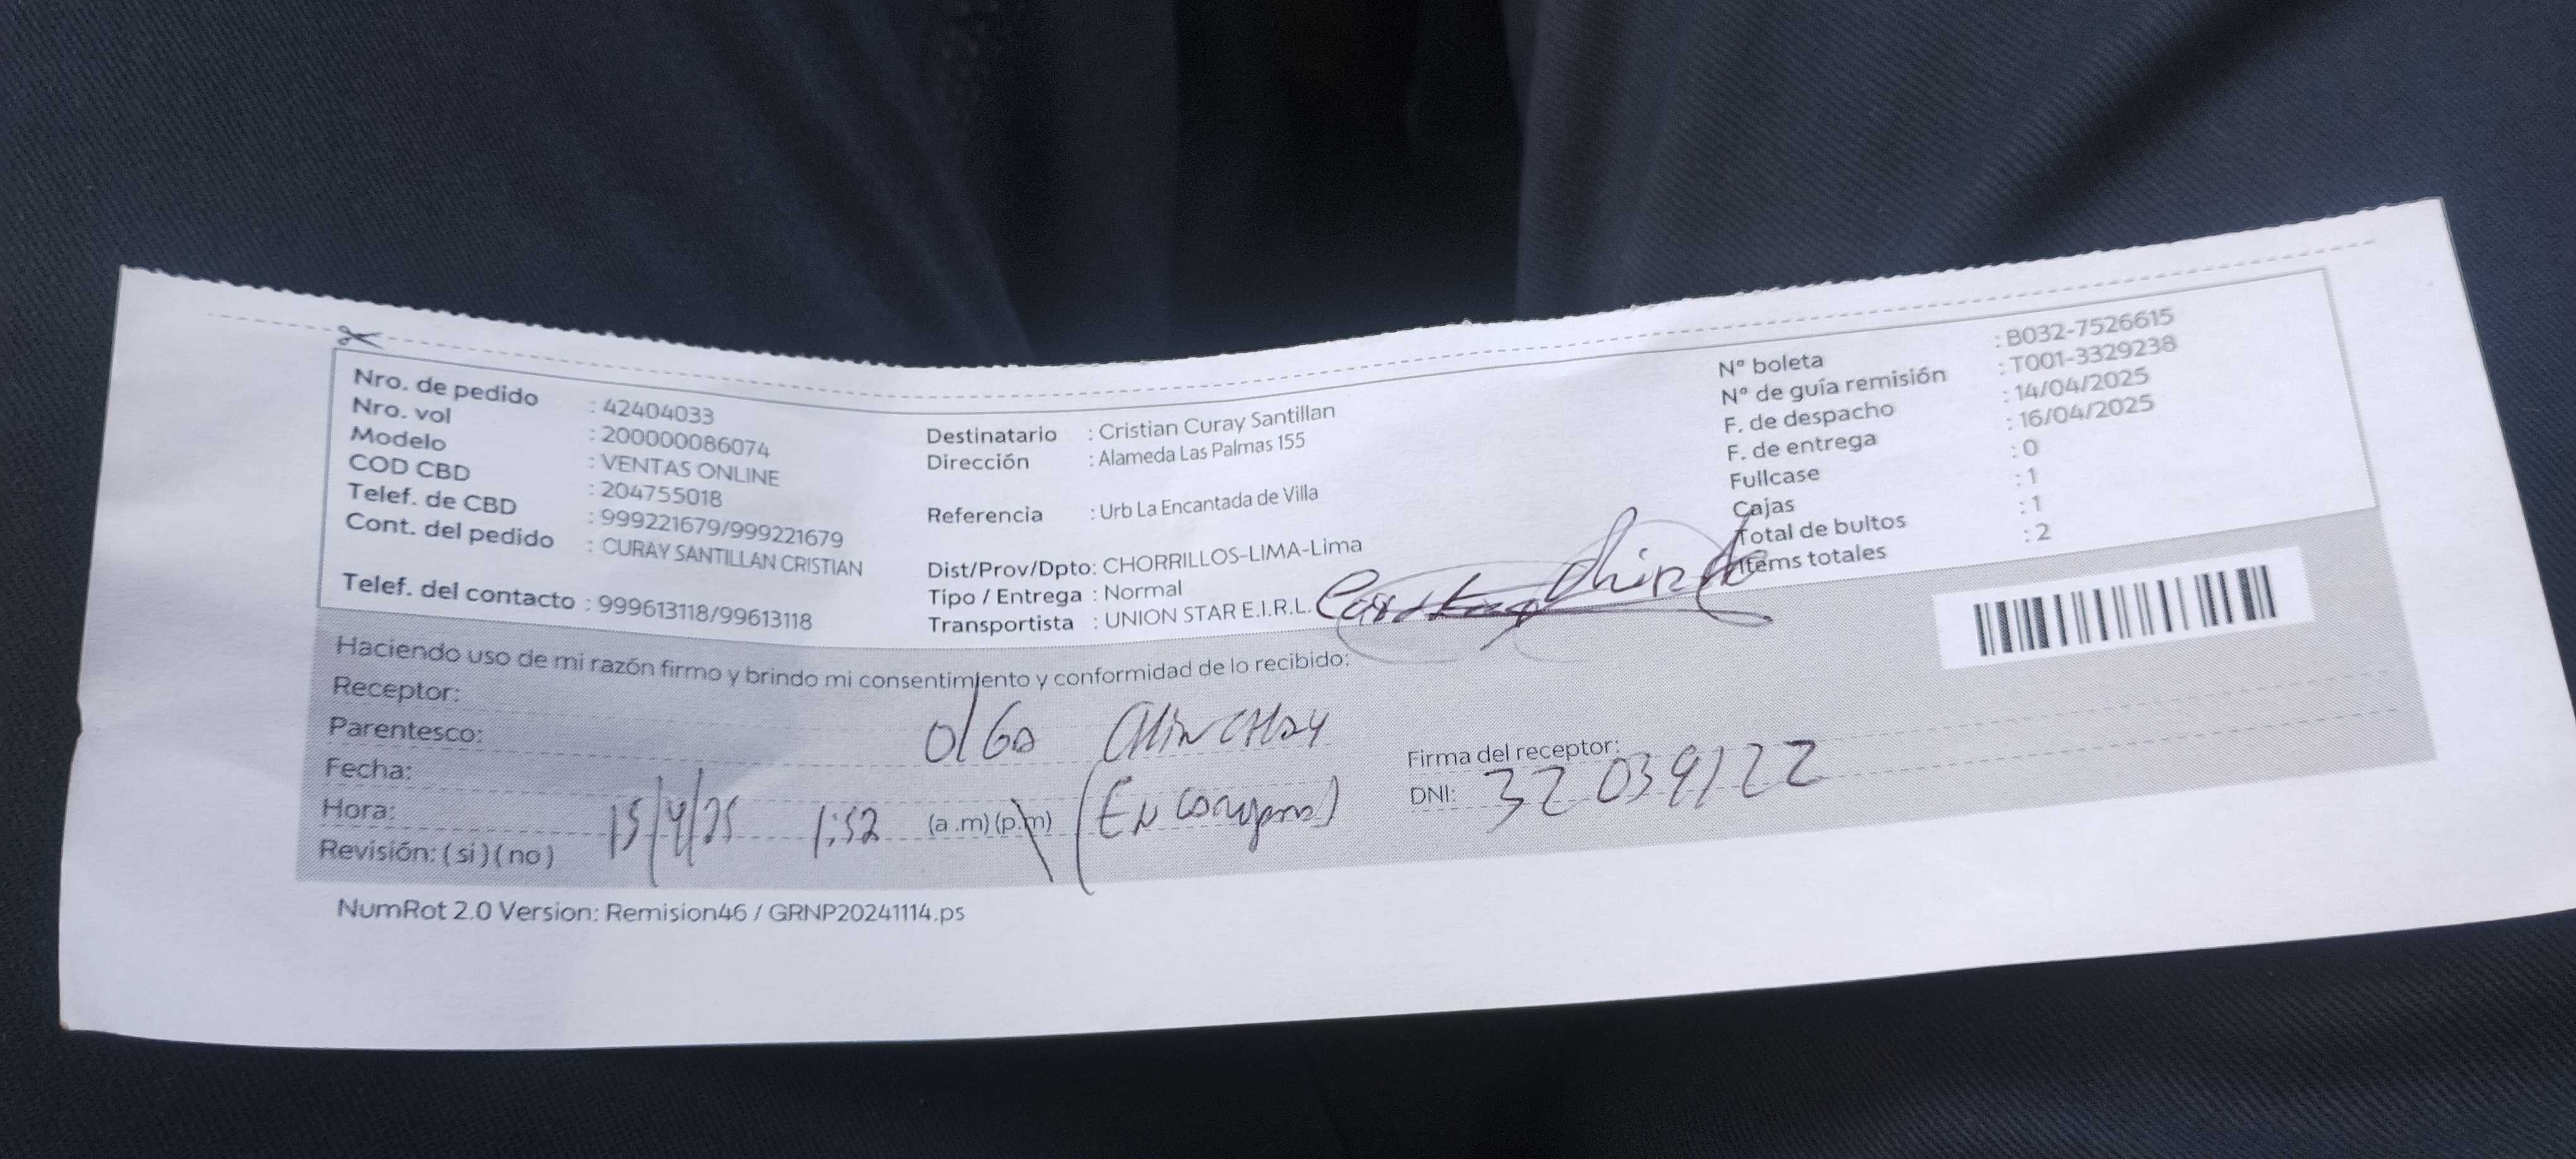 Nro. de pedido : 42404033
Nro. vol : 200000086074
Modelo : VENTAS ONLINE
COD CBD : 204755018
Telef. de CBD : 999221679/999221679
Cont. del pedido : CURAY SANTILLAN CRISTIAN
Telef. del contacto : 999613118/99613118
Destinatario : Cristian Curay Santillan
Dirección : Alameda Las Palmas 155
Referencia : Urb La Encantada de Villa
Dist/Prov/Dpto: CHORRILLOS-LIMA-Lima
Tipo / Entrega : Normal
Transportista : UNION STAR E.I.R.L.
N° boleta : B032-7526615
N° de guía remisión : T001-3329238
F. de despacho : 14/04/2025
F. de entrega : 16/04/2025
Fullcase : 0
Cajas : 1
Total de bultos : 1
Items totales : 2
Haciendo uso de mi razón firmo y brindo mi consentimiento y conformidad de lo recibido:
Receptor:
Parentesco: olga
Firma del receptor:
Fecha: 15/4/25
Hora: 1:52 (a .m) (p.m)
DNI: 32039122
Revisión: ( si ) ( no )
NumRot 2.0 Version: Remision46 / GRNP20241114.ps